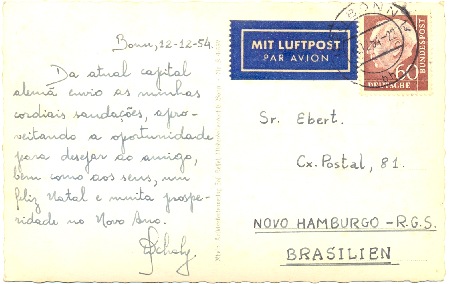 Bonn, 12-12-54.
Da atual capital
alemã envio as minhas
cordiais saudações, apro-
veitando a oportunidade
para desejar ao amigo,
bem como aos seus, um
feliz Natal e muita prospe-
ridade no Novo Ano.
MIT LUFTPOST
PAR AVION
BONN
60
DEUTSCHE
BUNDESPOST
Sr. Ebert.
Cx. Postal, 81.
NOVO HAMBURGO - R.G.S.
BRASILIEN